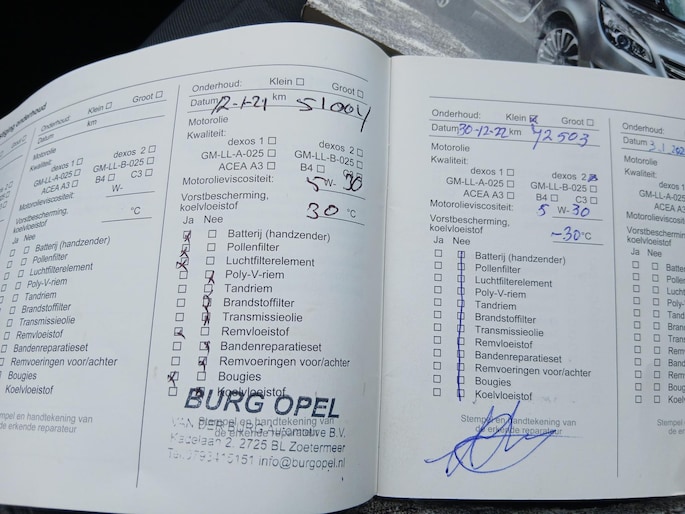 Onderhoud: Klein Groot
Datum km
Motorolie
Kwaliteit:
dexos 1 dexos 2
GM-LL-A-025 GM-LL-B-025
ACEA A3 B4 C3
Motorolieviscositeit: W-
Vorstbescherming,
koelvloeistof °C
Ja Nee
Batterij (handzender)
Pollenfilter
Luchtfilterelement
Poly-V-riem
Tandriem
Brandstoffilter
Transmissieolie
Remvloeistof
Bandenreparatieset
Remvoeringen voor/achter
Bougies
Koelvloeistof
Stempel en handtekening van
de erkende reparateur
Onderhoud: Klein Groot
Datum 12-1-21 km 51004
Motorolie
Kwaliteit:
dexos 1 dexos 2
GM-LL-A-025 GM-LL-B-025
ACEA A3 B4
Motorolieviscositeit: 5 W- 30
Vorstbescherming,
koelvloeistof 30 °C
Ja Nee
Batterij (handzender)
Pollenfilter
Luchtfilterelement
Poly-V-riem
Tandriem
Brandstoffilter
Transmissieolie
Remvloeistof
Bandenreparatieset
Remvoeringen voor/achter
Bougies
Koelvloeistof
BURG OPEL
Stempel en handtekening van
de erkende reparateur
Automotive B.V.
2725 BL Zoetermeer
info@burgopel.nl
Onderhoud: Klein Groot
Datum 30-12-22 km 42503
Motorolie
Kwaliteit:
dexos 1 dexos 2
GM-LL-A-025 GM-LL-B-025
ACEA A3 B4 C3
Motorolieviscositeit: 5 W-30
Vorstbescherming,
koelvloeistof -30°C
Ja Nee
Batterij (handzender)
Pollenfilter
Luchtfilterelement
Poly-V-riem
Tandriem
Brandstoffilter
Transmissieolie
Remvloeistof
Bandenreparatieset
Remvoeringen voor/achter
Bougies
Koelvloeistof
Stempel en handtekening van
de erkende reparateur
Onderhoud:
Datum
Motorolie
Kwaliteit:
Vorstbescherming,
koelvloeistof
Ja Nee